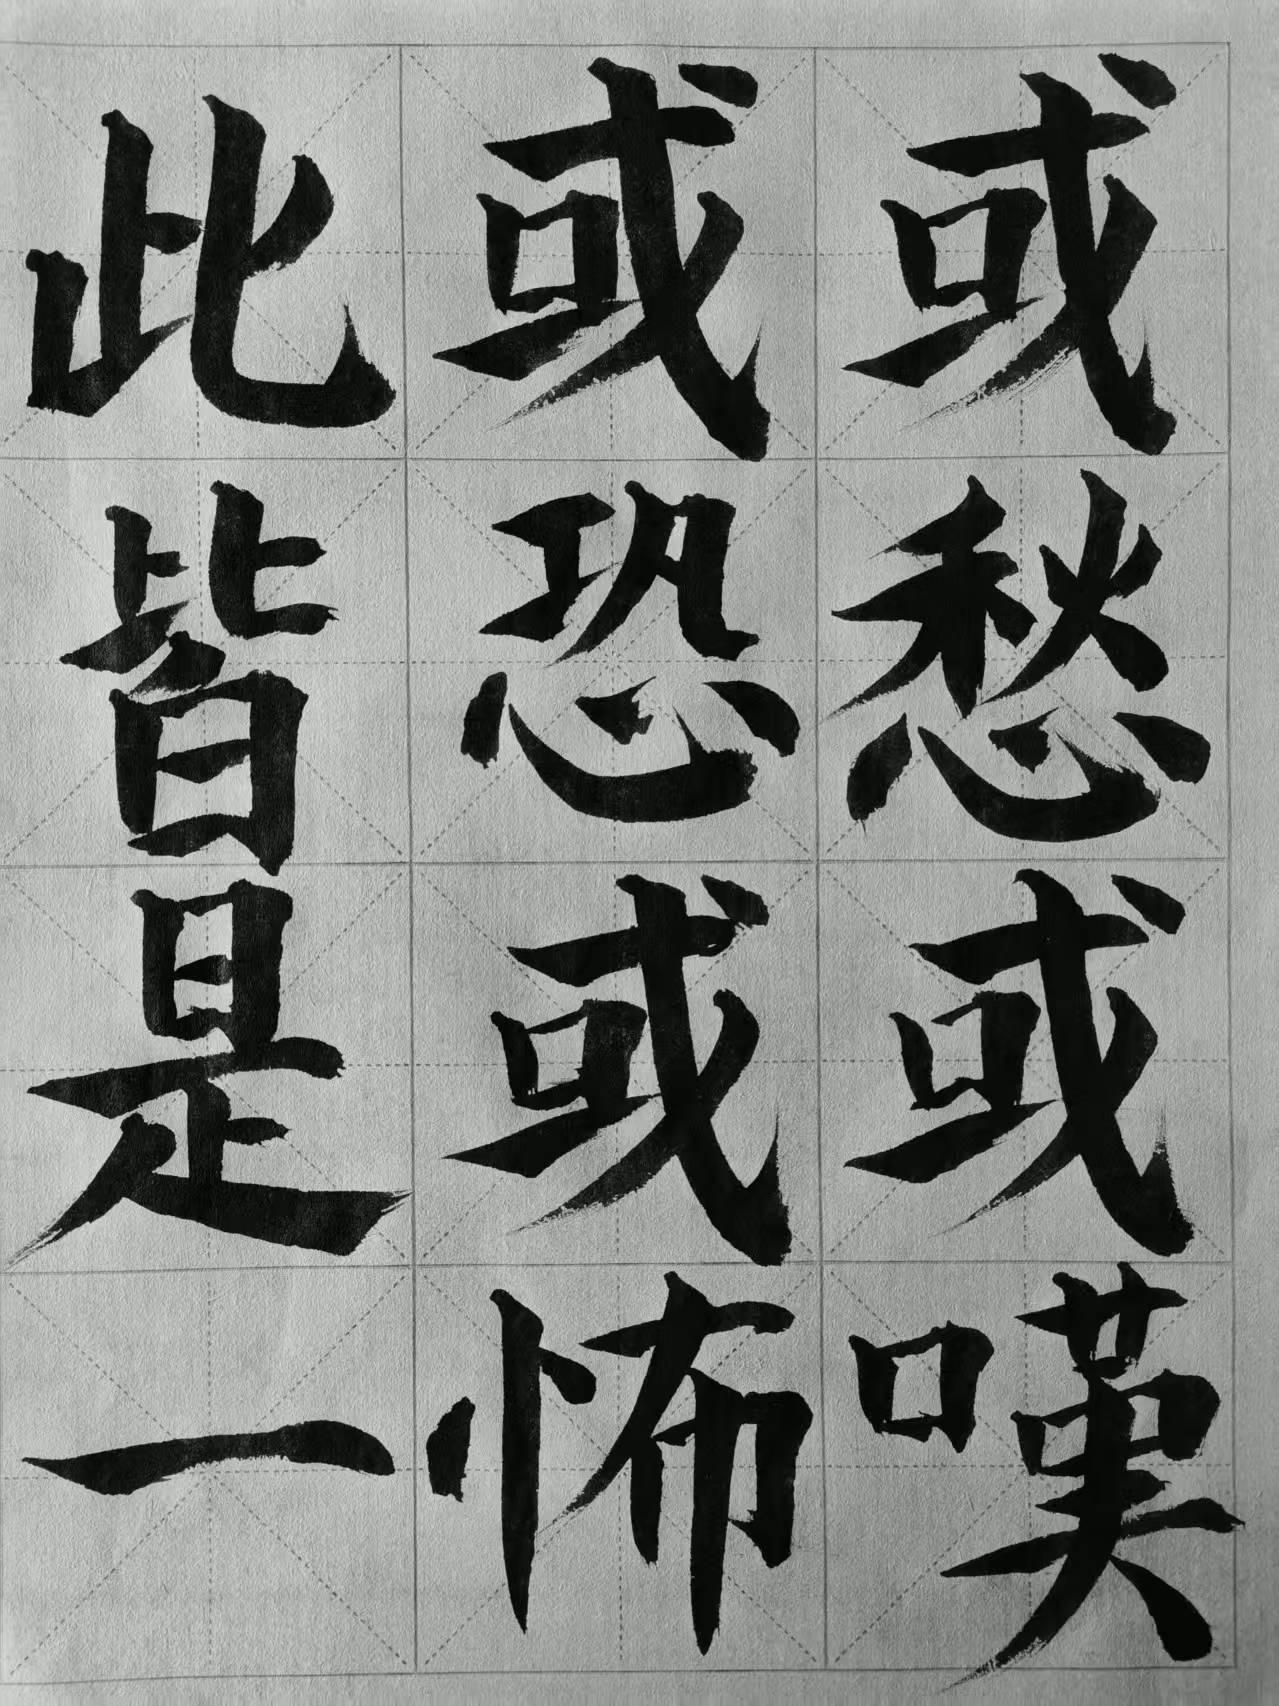 或愁或嘆
或恐或怖
此皆是一